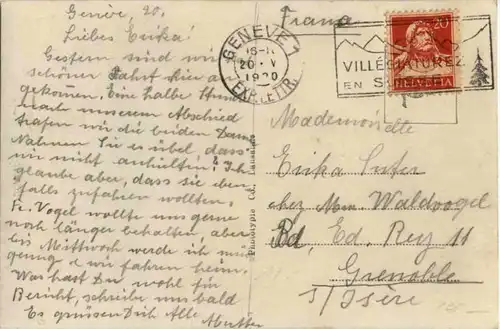 Genève, 20.
Liebes Erika!
Gestern sind wir
schöner Fahrt hier an-
gekommen. Eine halbe Stunde
nach unserem Abschied
trafen wir die beiden Damen
Nahmen Sie es übel dass
wir nicht anhielten? Ich
glaube aber, dass sie eben-
falls zufahren wollten.
Fr. Vogel wollte uns gerne
noch länger behalten, aber
bis Mittwoch werde ich
genug & wir fahren heim.
Was hast Du wohl für
Bericht, schreibe uns bald
Es grüssen Dich Alle
Mutter
Phototypie Co., Lausanne
France
GENÈVE 1
20. V
1920
EXP. LETTR.
VILLÉGIATUREZ
EN S
20
HELVETIA
Mademoiselle
Erika Suter
chez Mme Waldvogel
Bd. Ed. Rey 11
Grenoble
s/Isère